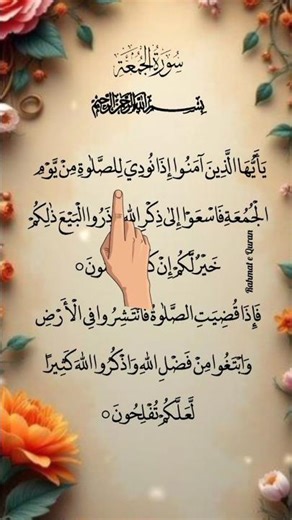 سُورَةُ الْجُمُعَةِ
بِسْمِ اللهِ الرَّحْمٰنِ الرَّحِيْمِ
يَا أَيُّهَا الَّذِينَ آمَنُوا إِذَا نُودِيَ لِلصَّلٰوةِ مِنْ يَّوْمِ
الْجُمُعَةِ فَاسْعَوْا إِلٰى ذِكْرِ اللهِ ذَرُوا الْبَيْعَ ذٰلِكُمْ
خَيْرٌ لَّكُمْ إِنْ
فَإِذَا قُضِيَتِ الصَّلٰوةُ فَانْتَشِرُوا فِي الْأَرْضِ
وَابْتَغُوا مِنْ فَضْلِ اللهِ وَاذْكُرُوا اللهَ كَثِيرًا
لَّعَلَّكُمْ تُفْلِحُونَ ○
Rahmat e Quran